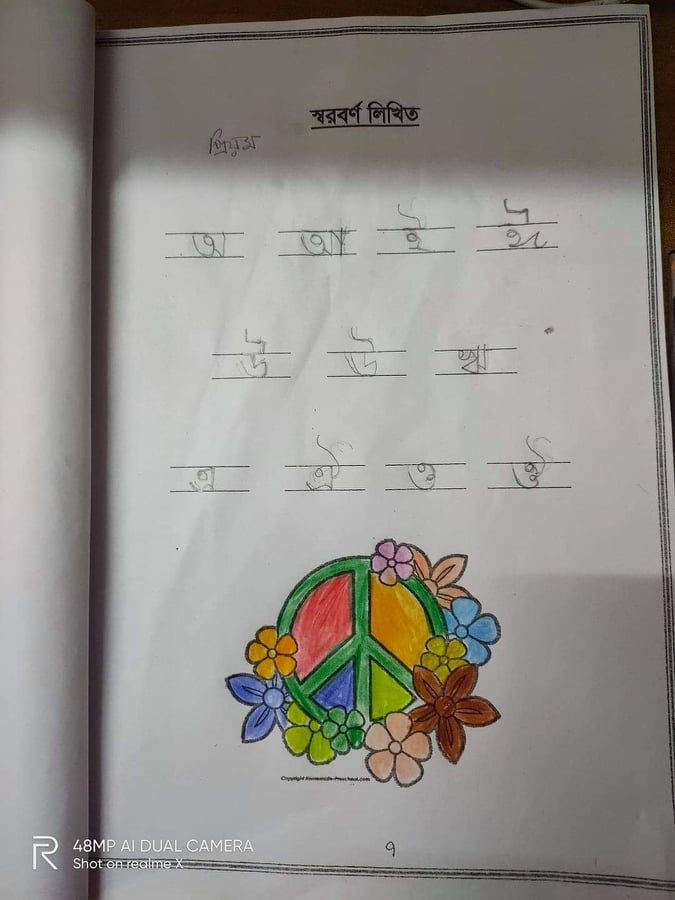 স্বরবর্ণ লিখিত
প্রিয়ম
অ আ ই ঈ
উ ঊ ঋ
এ ঐ ও ঔ
Copyright Homemade-Preschool.com
৭
48MP AI DUAL CAMERA
Shot on realme X